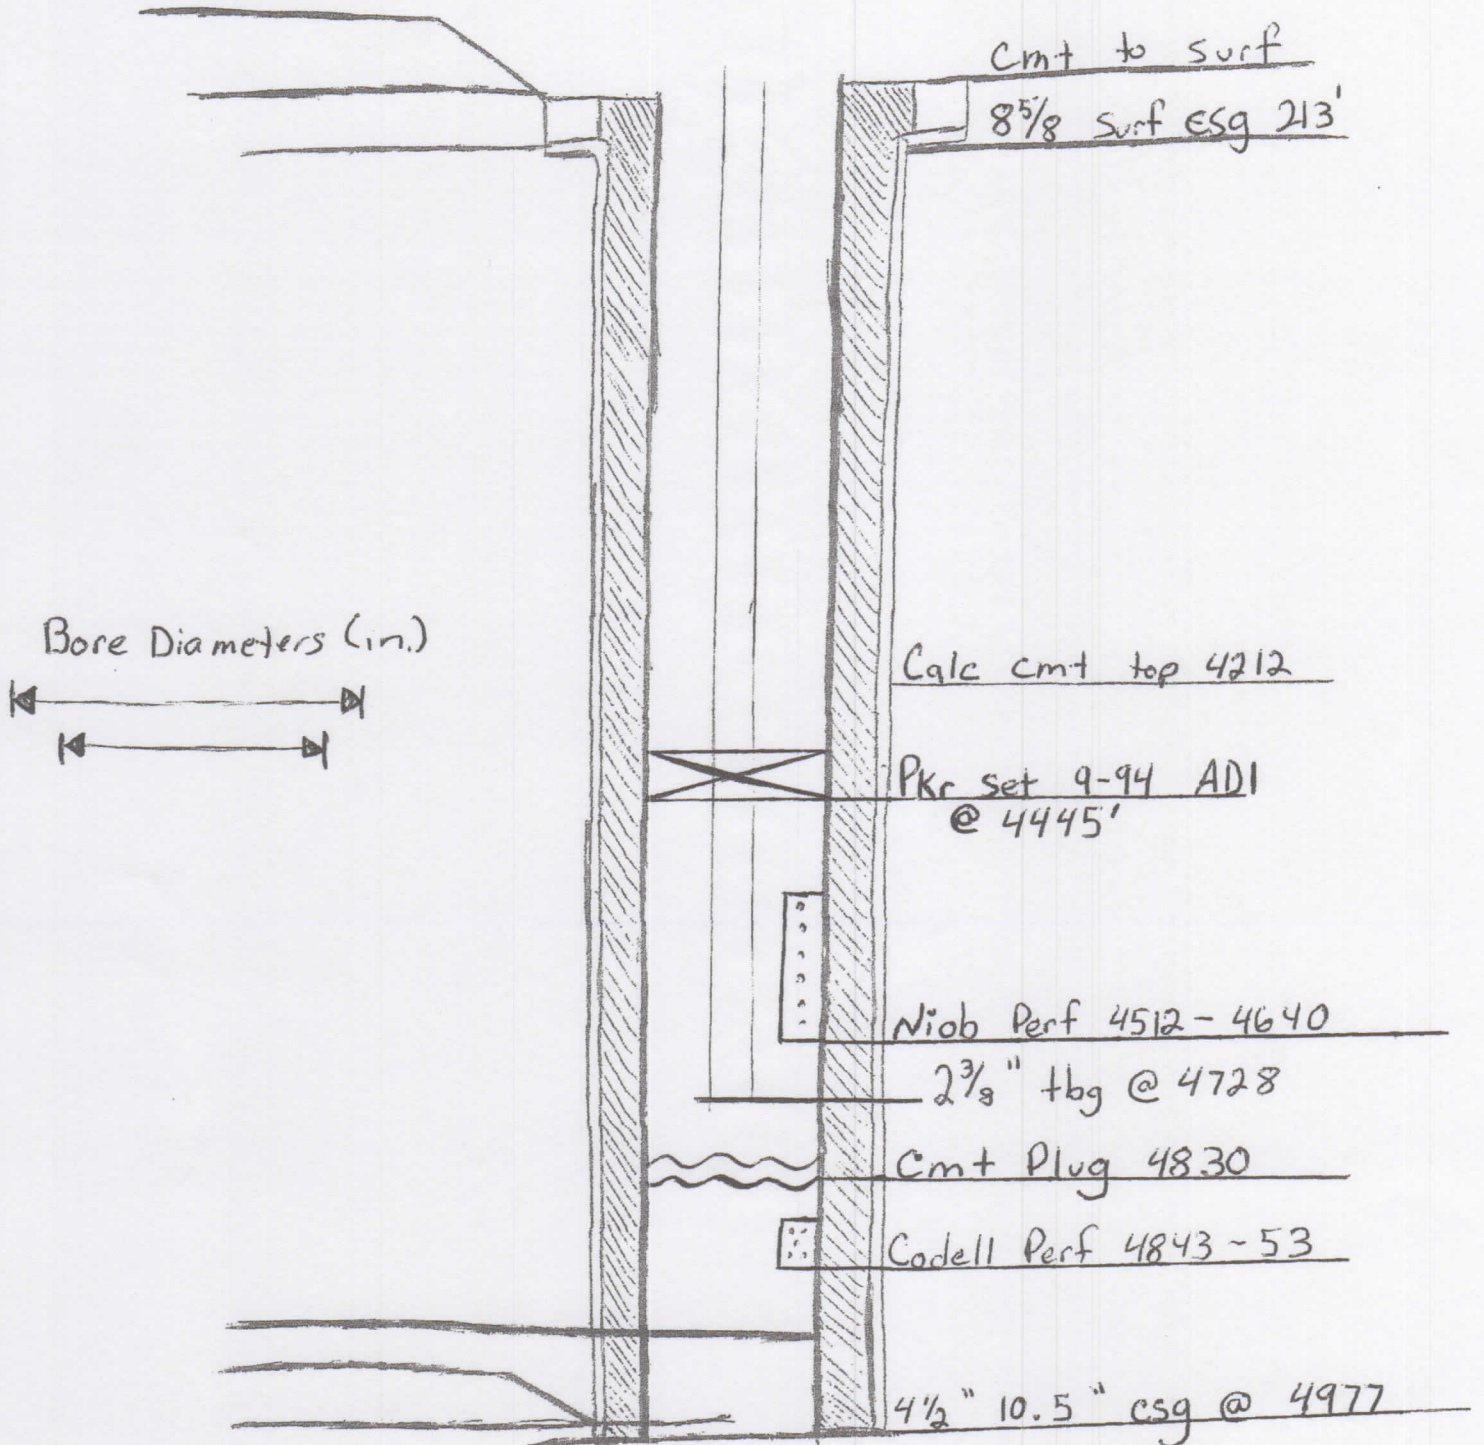 Cmt to surf
8 5/8 surf csg 213'
Bore Diameters (in.)
Calc cmt top 4212
Pkr set 9-94 ADI
@ 4445'
Niob Perf 4512-4640
2 3/8" tbg @ 4728
Cmt Plug 4830
Codell Perf 4843-53
4 1/2" 10.5" csg @ 4977